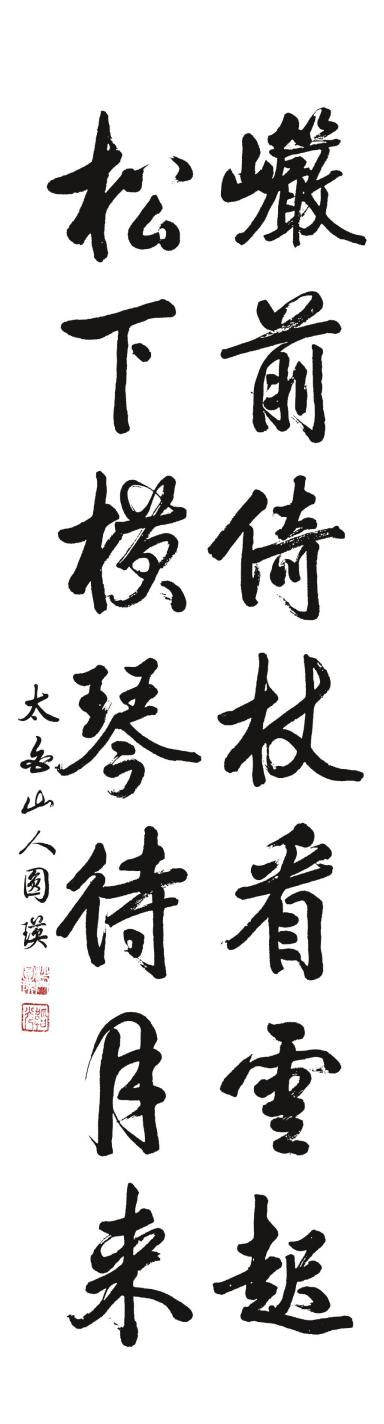 巖前倚杖看雲起
松下横琴待月来
太白山人圓瑛